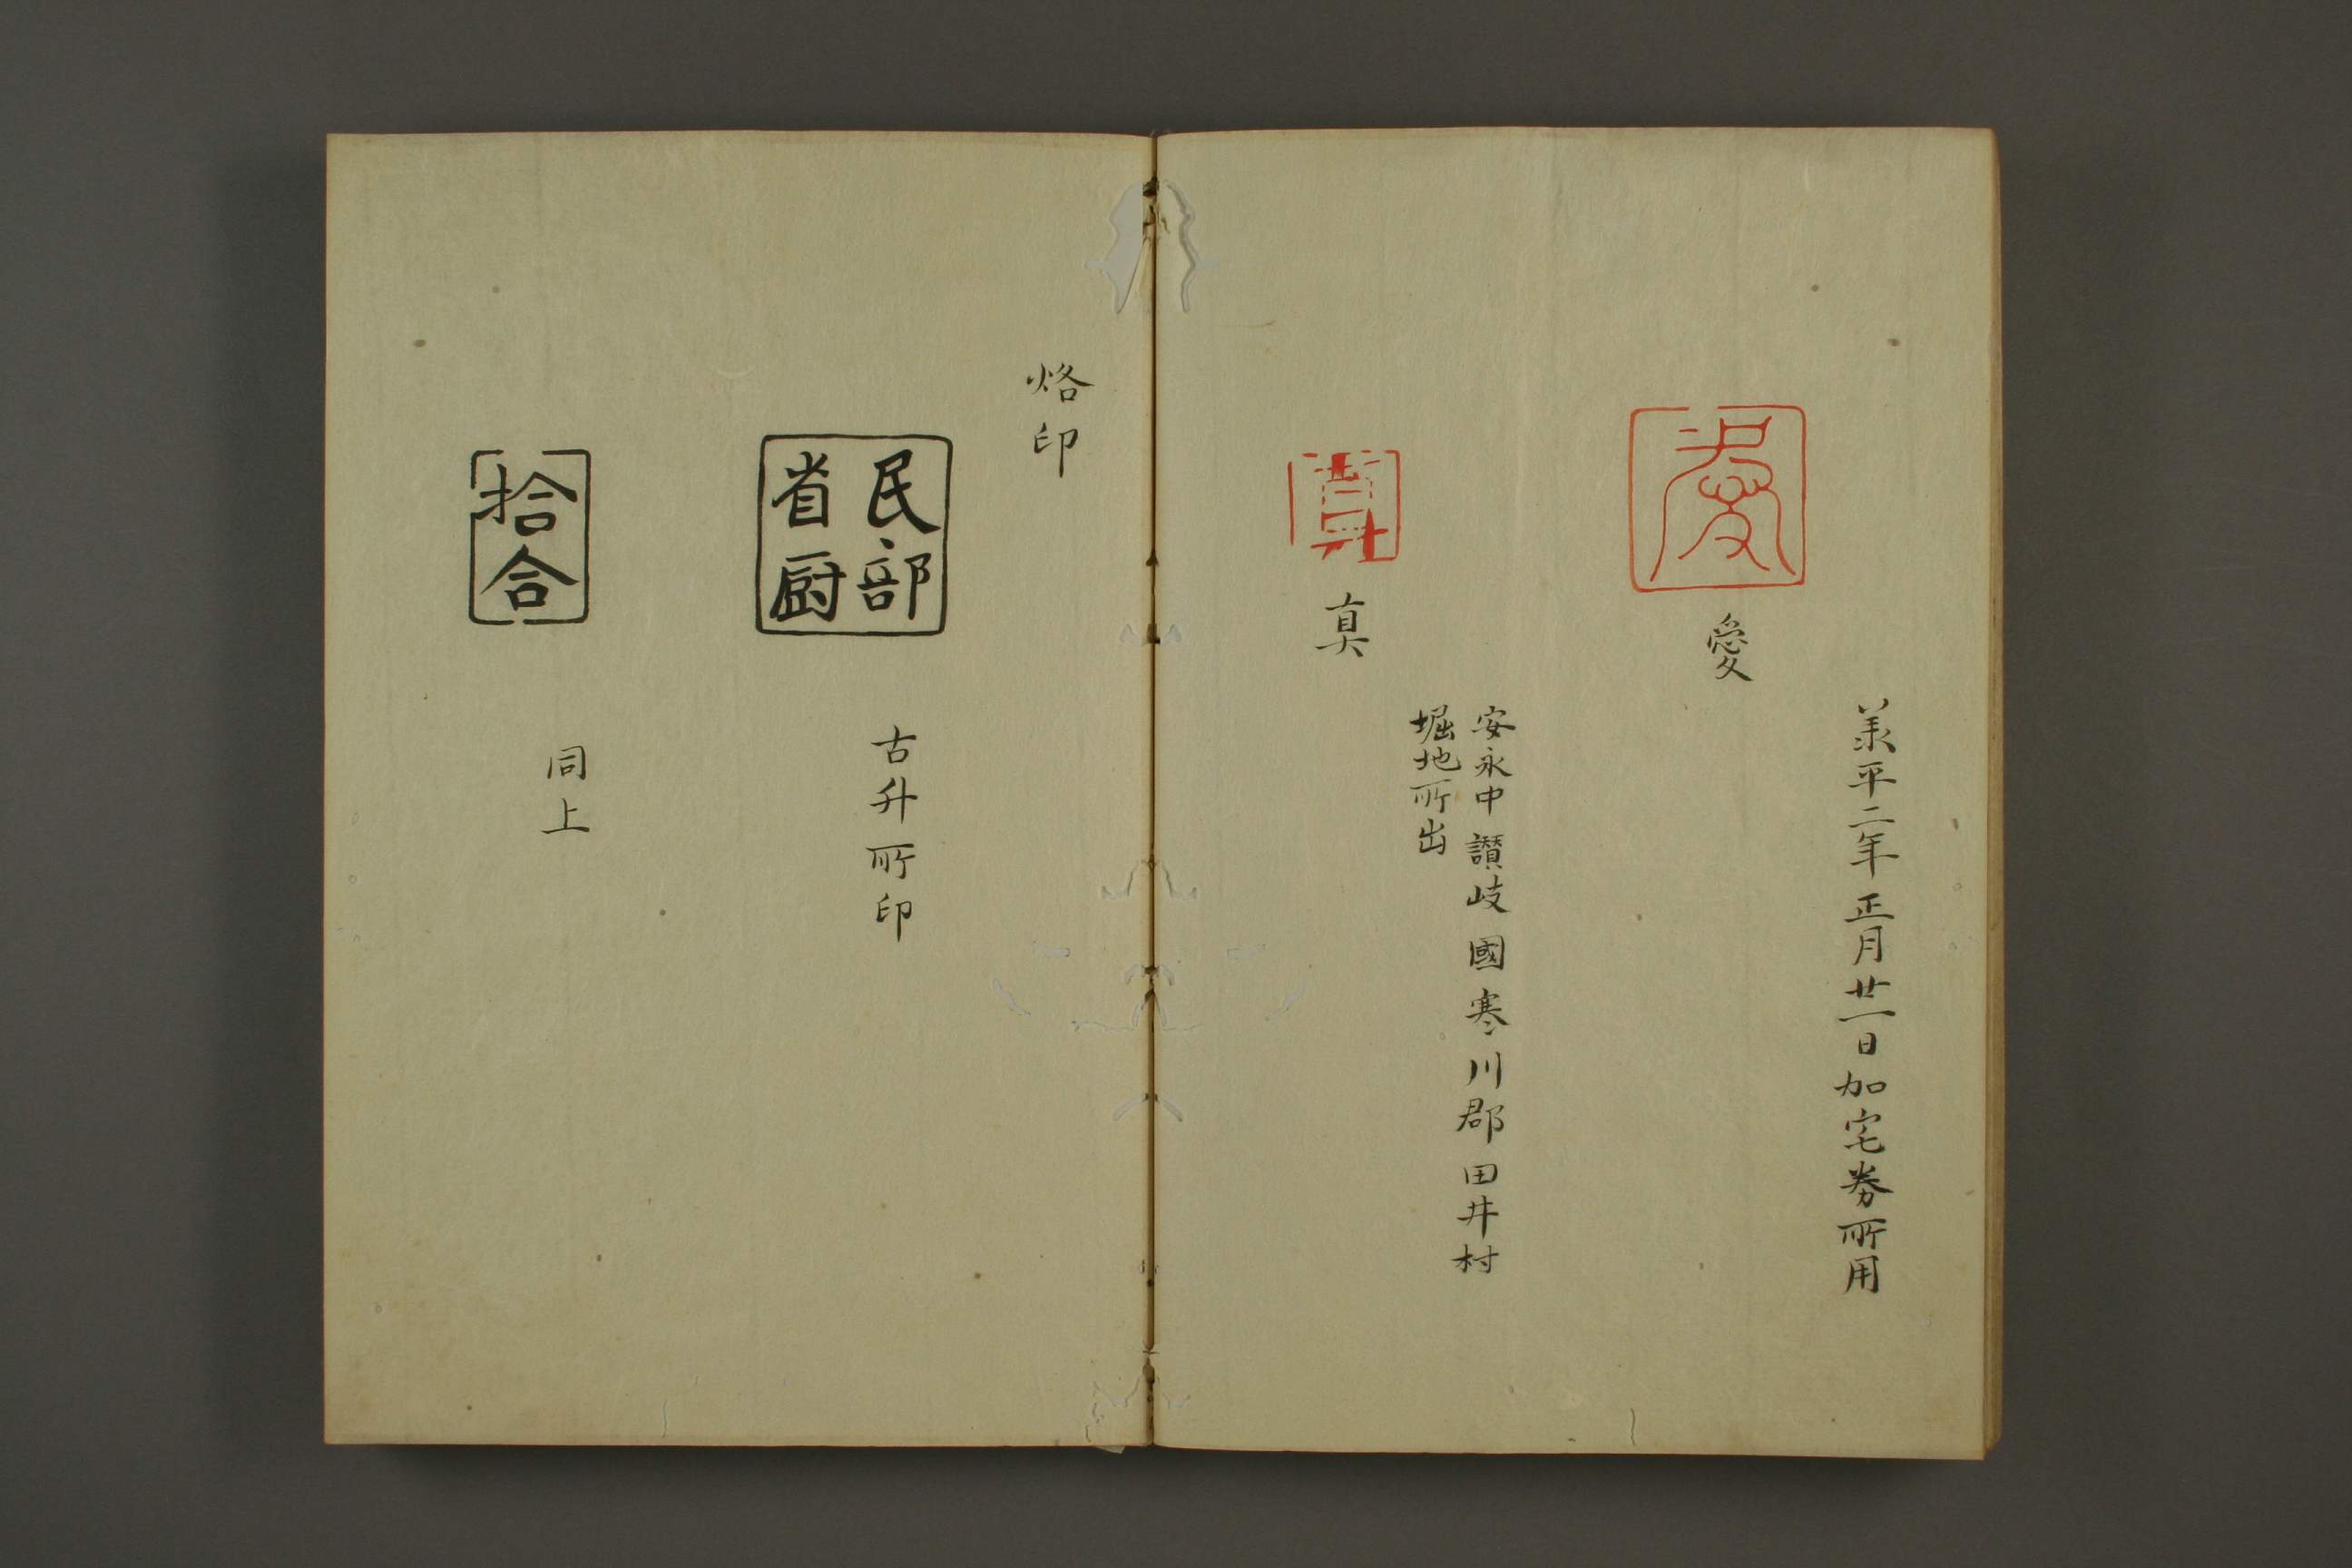 承平二年正月廿一日加宅券所用
愛
愛
安永中讃岐國寒川郡田井村
堀地所出
真
真
烙印
民部
省厨
古升所印
拾合
同上